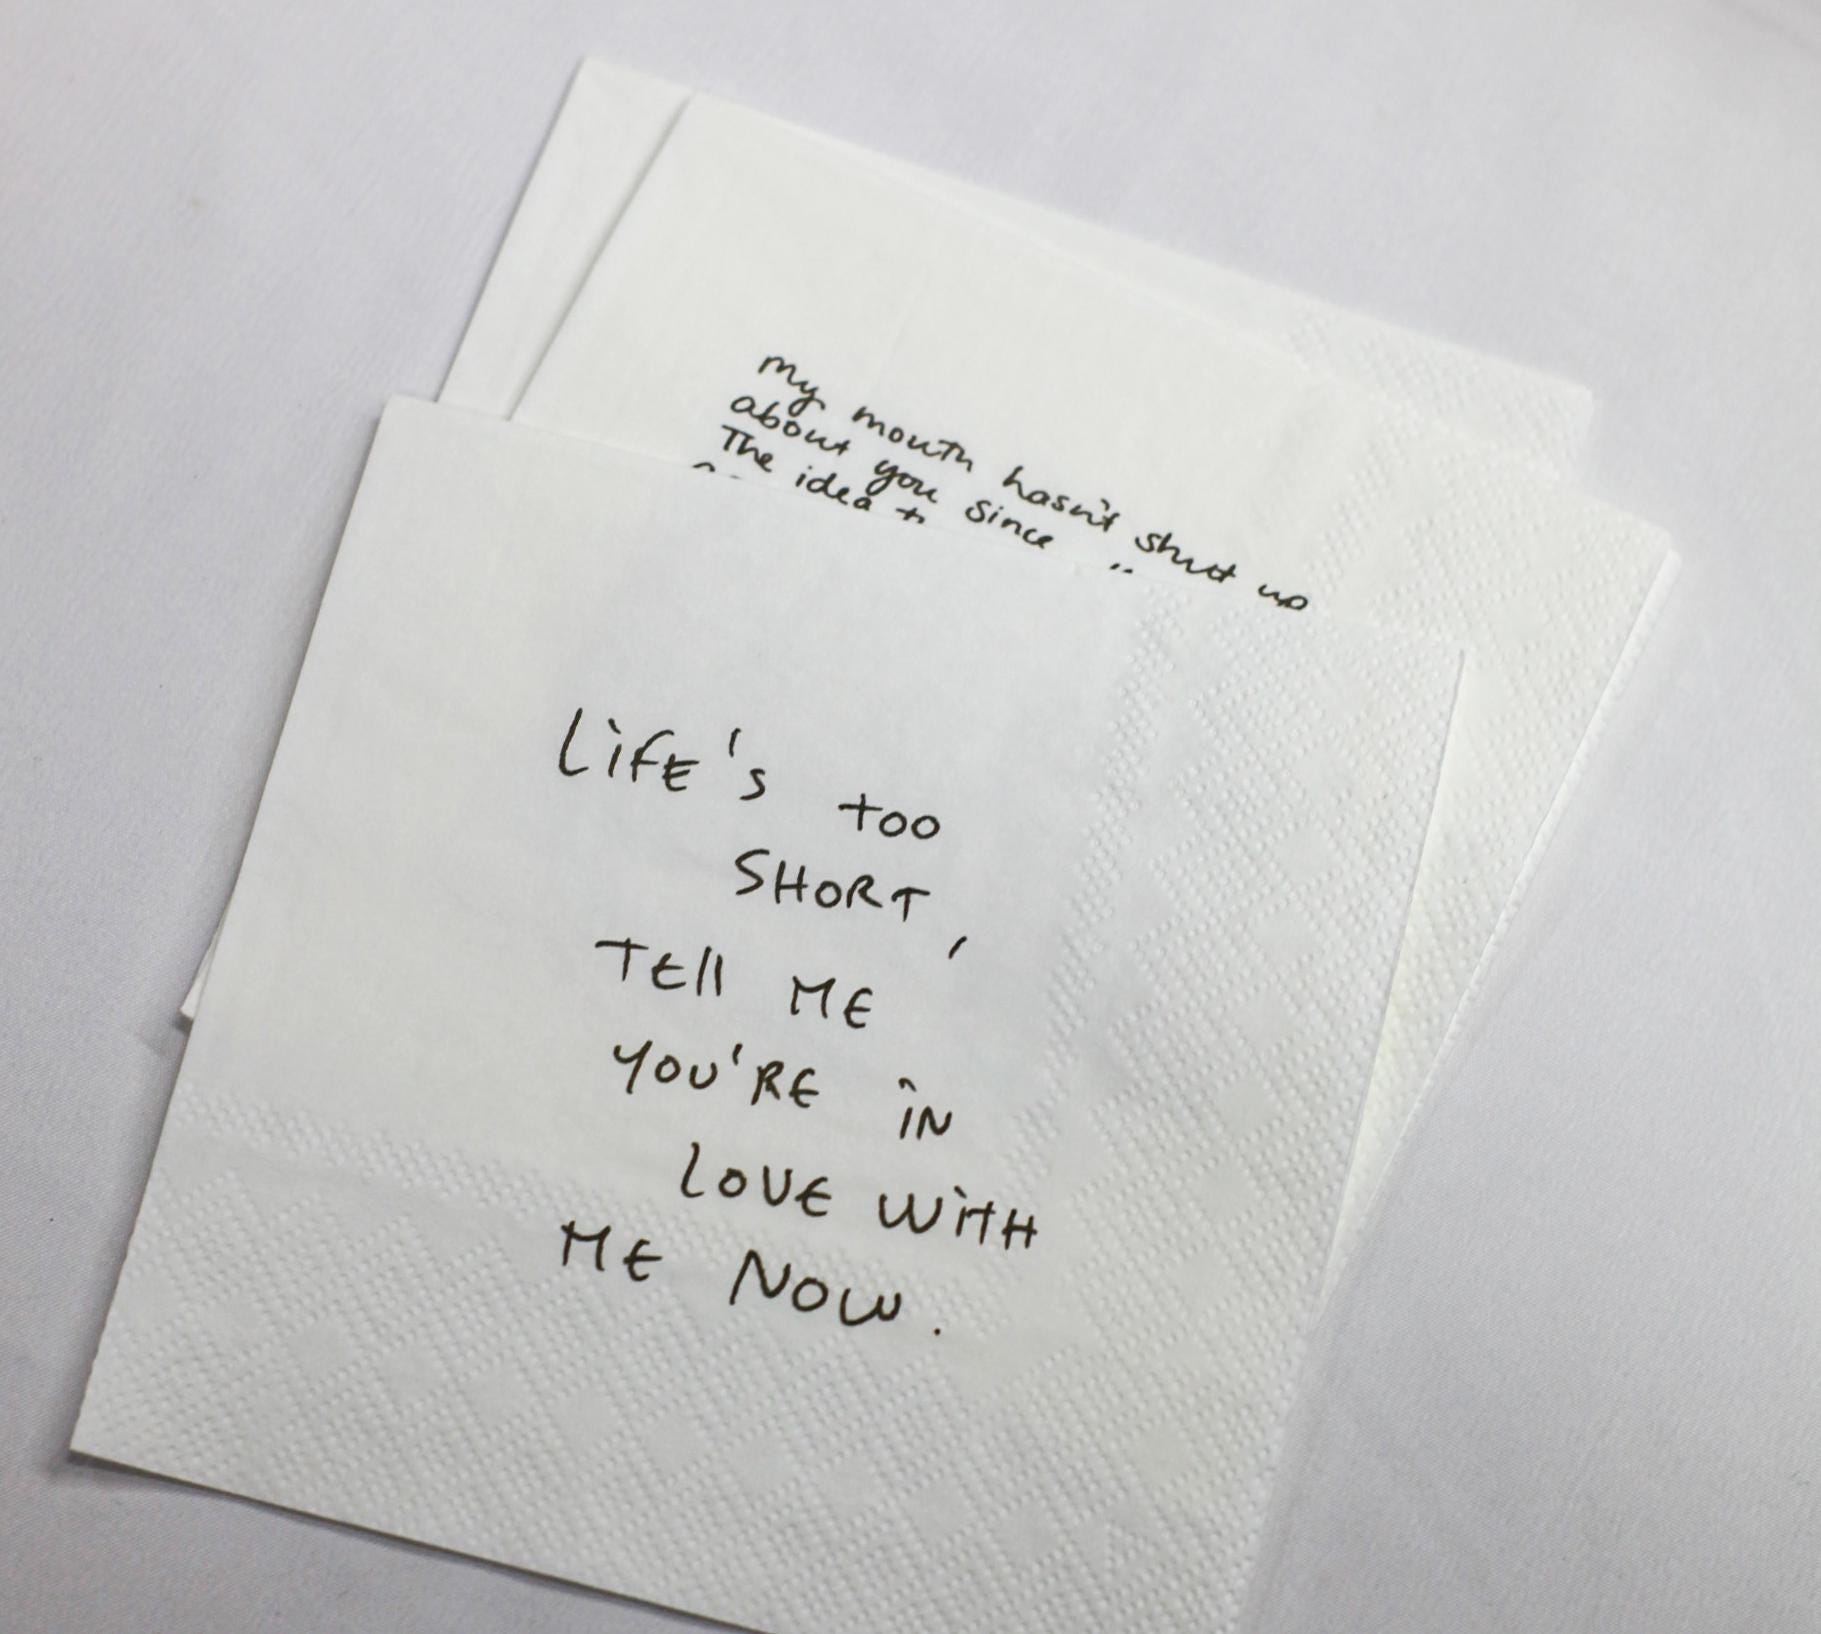 my mouth hasn't shut up
about you since
The idea
LiFE's too
SHORT,
TEll ME
YOU'RE iN
LOVE WiTH
ME NOW.